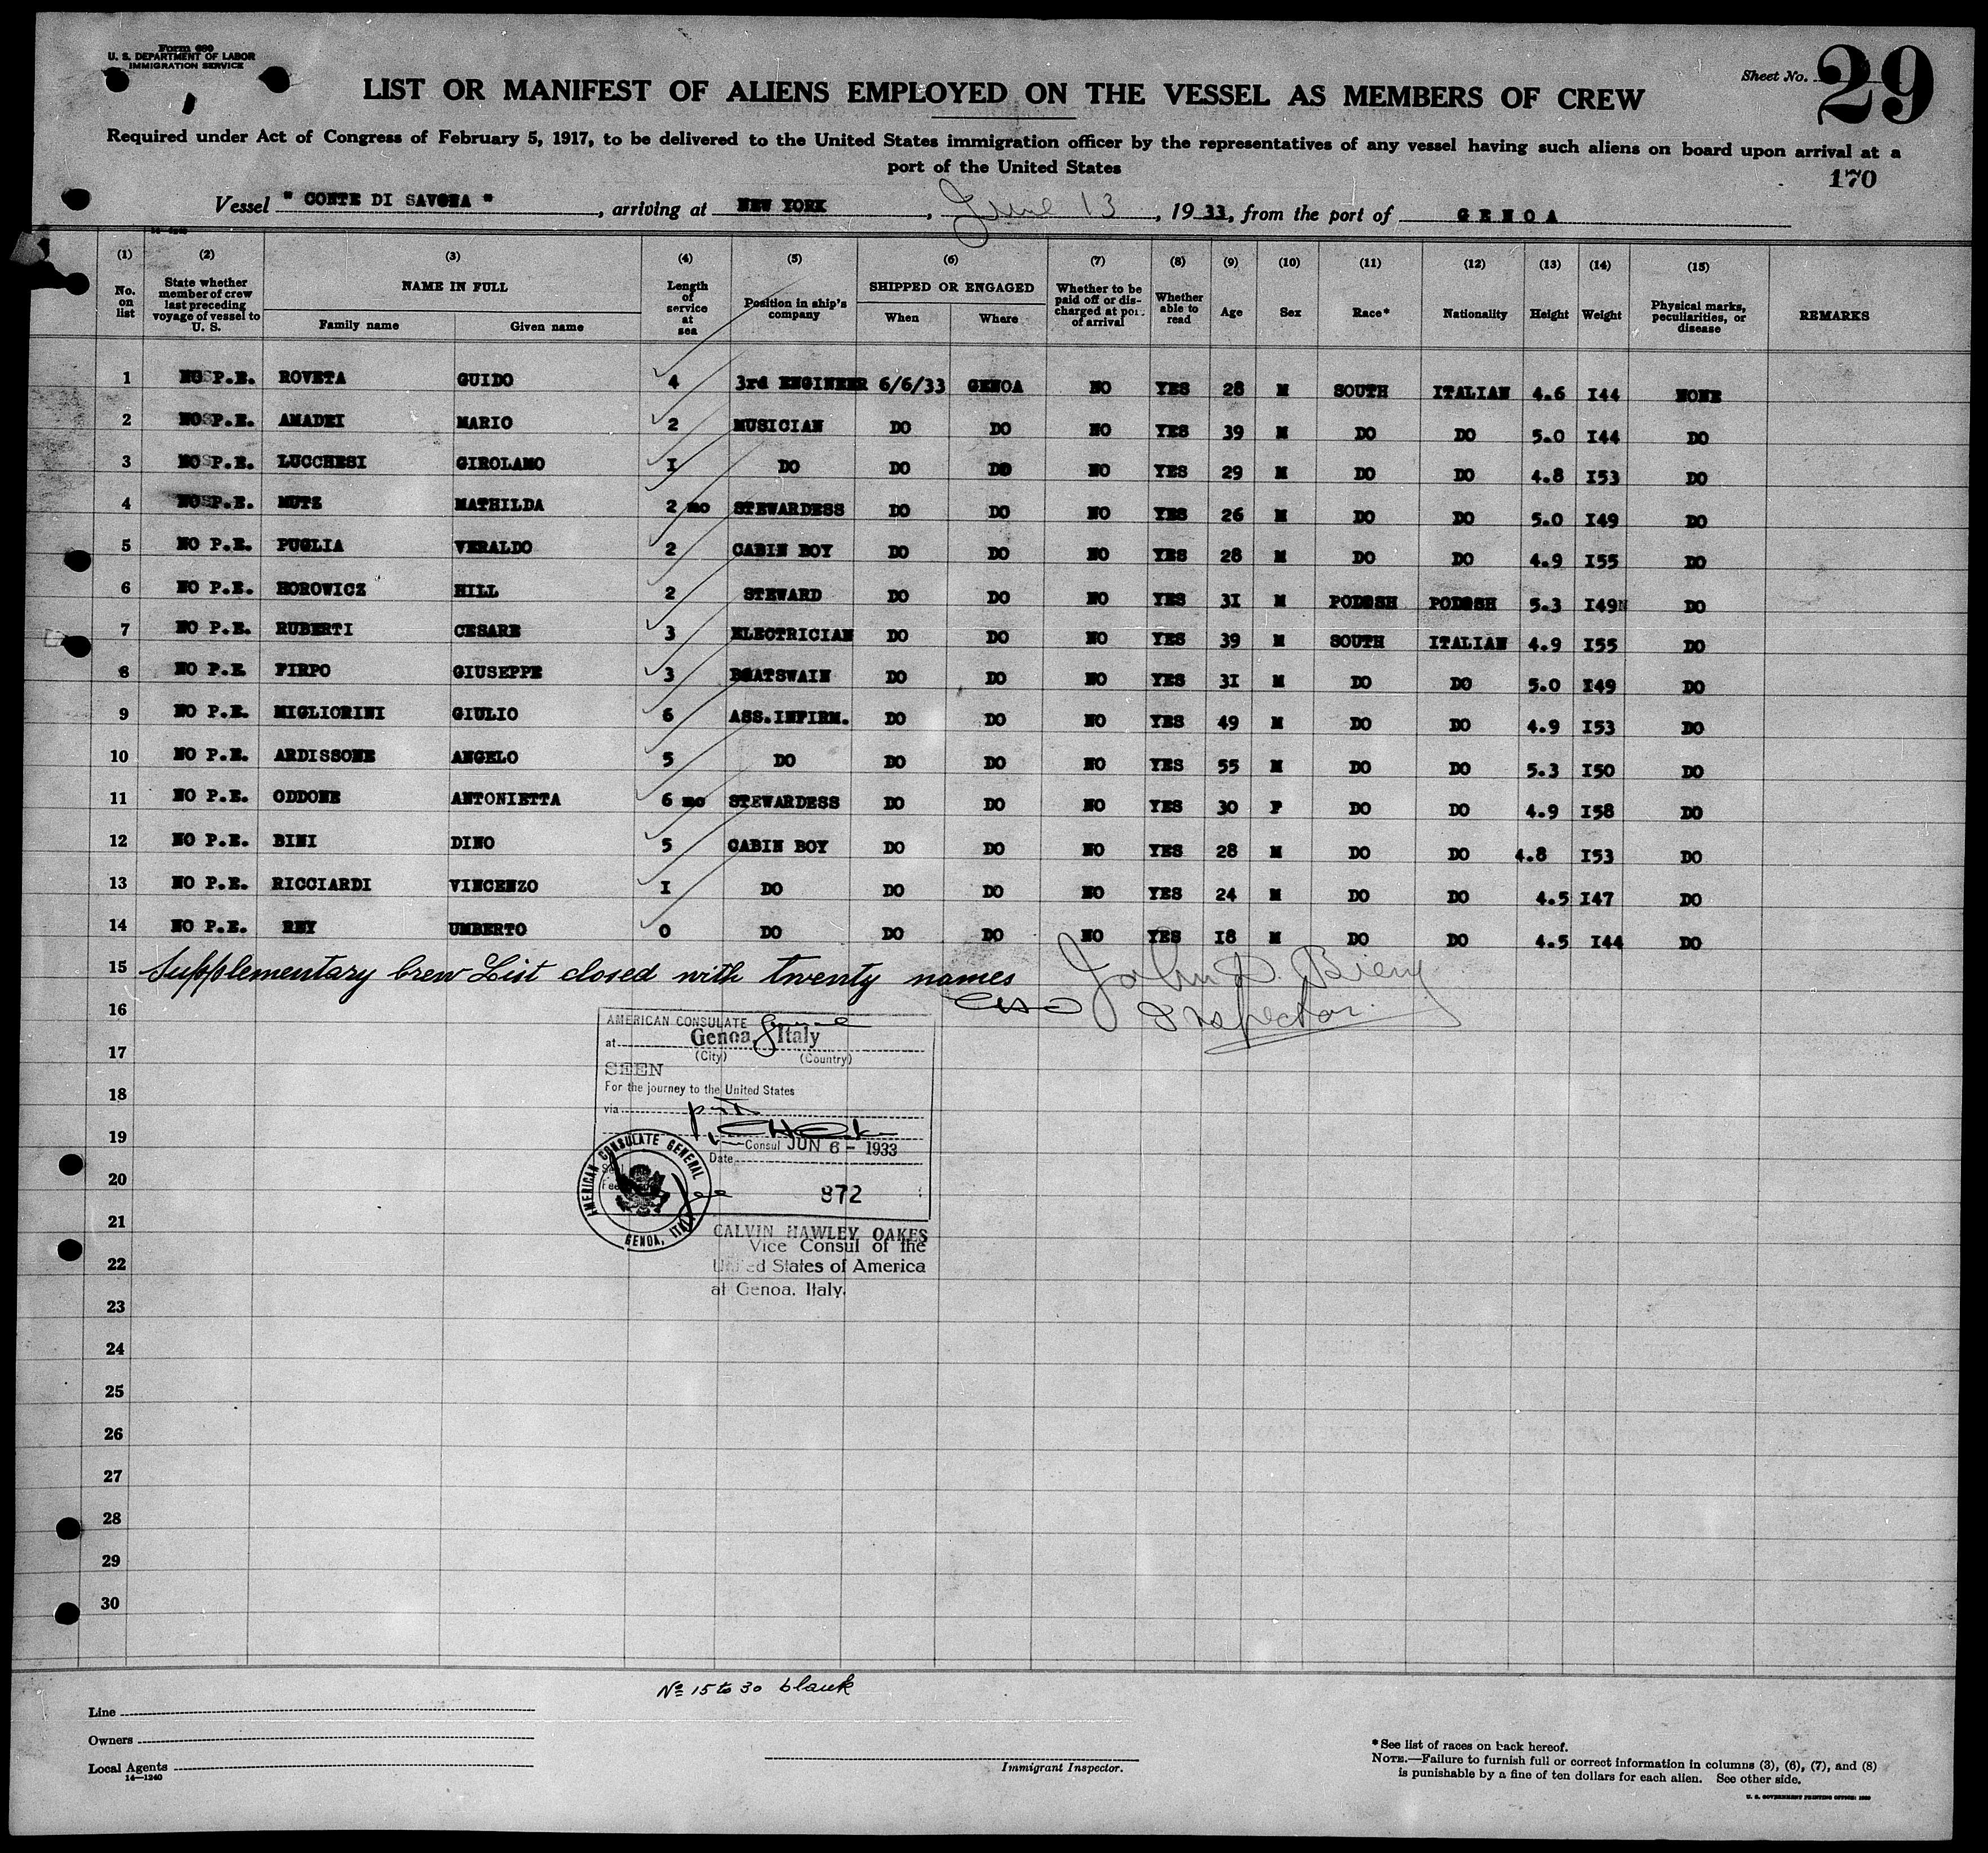 Form 680
U. S. DEPARTMENT OF LABOR
IMMIGRATION SERVICE
Sheet No. 29
LIST OR MANIFEST OF ALIENS EMPLOYED ON THE VESSEL AS MEMBERS OF CREW
Required under Act of Congress of February 5, 1917, to be delivered to the United States immigration officer by the representatives of any vessel having such aliens on board upon arrival at a
port of the United States
170
Vessel " CONTE DI SAVOIA ", arriving at NEW YORK, June 13, 1933, from the port of GENOA
(1) (2) (3) (4) (5) (6) (7) (8) (9) (10) (11) (12) (13) (14) (15)
No. on list State whether member of crew last preceding voyage of vessel to U. S. NAME IN FULL Family name Given name Length of service at sea Position in ship's company SHIPPED OR ENGAGED When Where Whether to be paid off or discharged at por. of arrival Whether able to read Age Sex Race* Nationality Height Weight Physical marks, peculiarities, or disease REMARKS
1 NO P.E. ROVETA GUIDO 4 3rd ENGINEER 6/6/33 GENOA NO YES 28 M SOUTH ITALIAN 4.6 I44 NONE
2 NO P.E. AMADEI MARIO 2 MUSICIAN DO DO NO YES 39 M DO DO 5.0 I44 DO
3 NO P.E. LUCCHESI GIROLAMO I DO DO DO NO YES 29 M DO DO 4.8 I53 DO
4 NO P.E. MUTZ MATHILDA 2 mo STEWARDESS DO DO NO YES 26 M DO DO 5.0 I49 DO
5 NO P.E. PUGLIA VERALDO 2 CABIN BOY DO DO NO YES 28 M DO DO 4.9 I55 DO
6 NO P.E. HOROWICZ HILL 2 STEWARD DO DO NO YES 3I M 5.3 I49 DO
7 NO P.E. RUBERTI CESARE 3 ELECTRICIAN DO DO NO YES 39 M SOUTH ITALIAN 4.9 I55 DO
8 NO P.E FIRPO GIUSEPPE 3 BOATSWAIN DO DO NO YES 3I M DO DO 5.0 I49 DO
9 NO P.E. MIGLIORINI GIULIO 6 ASS.INFIRM. DO DO NO YES 49 M DO DO 4.9 I53 DO
10 NO P.E. ARDISSONE ANGELO 5 DO DO DO NO YES 55 M DO DO 5.3 I50 DO
11 NO P.E. ODDONE ANTONIETTA 6 mo STEWARDESS DO DO NO YES 30 F DO DO 4.9 I58 DO
12 NO P.E. BINI DINO 5 CABIN BOY DO DO NO YES 28 M DO DO 4.8 I53 DO
13 NO P.E. RICCIARDI VINCENZO I DO DO DO NO YES 24 M DO DO 4.5 I47 DO
14 NO P.E. REY UMBERTO 0 DO DO DO NO YES I8 M DO DO 4.5 I44 DO
15 Supplementary Crew List closed with twenty names
John D.
Inspector
16
17
18
19
20
21
22
23
24
25
26
27
28
29
30
AMERICAN CONSULATE
at Genoa, Italy
(City) (Country)
SEEN
For the journey to the United States
via
Consul
Date JUN 6 - 1933
872
AMERICAN CONSULATE GENERAL
GENOA, ITALY
CALVIN HAWLEY OAKES
Vice Consul of the
United States of America
at Genoa. Italy.
No 15 to 30 blank
Line
Owners
Local Agents
14—1240
Immigrant Inspector.
* See list of races on back hereof.
NOTE.—Failure to furnish full or correct information in columns (3), (6), (7), and (8)
is punishable by a fine of ten dollars for each alien. See other side.
U. S. GOVERNMENT PRINTING OFFICE: